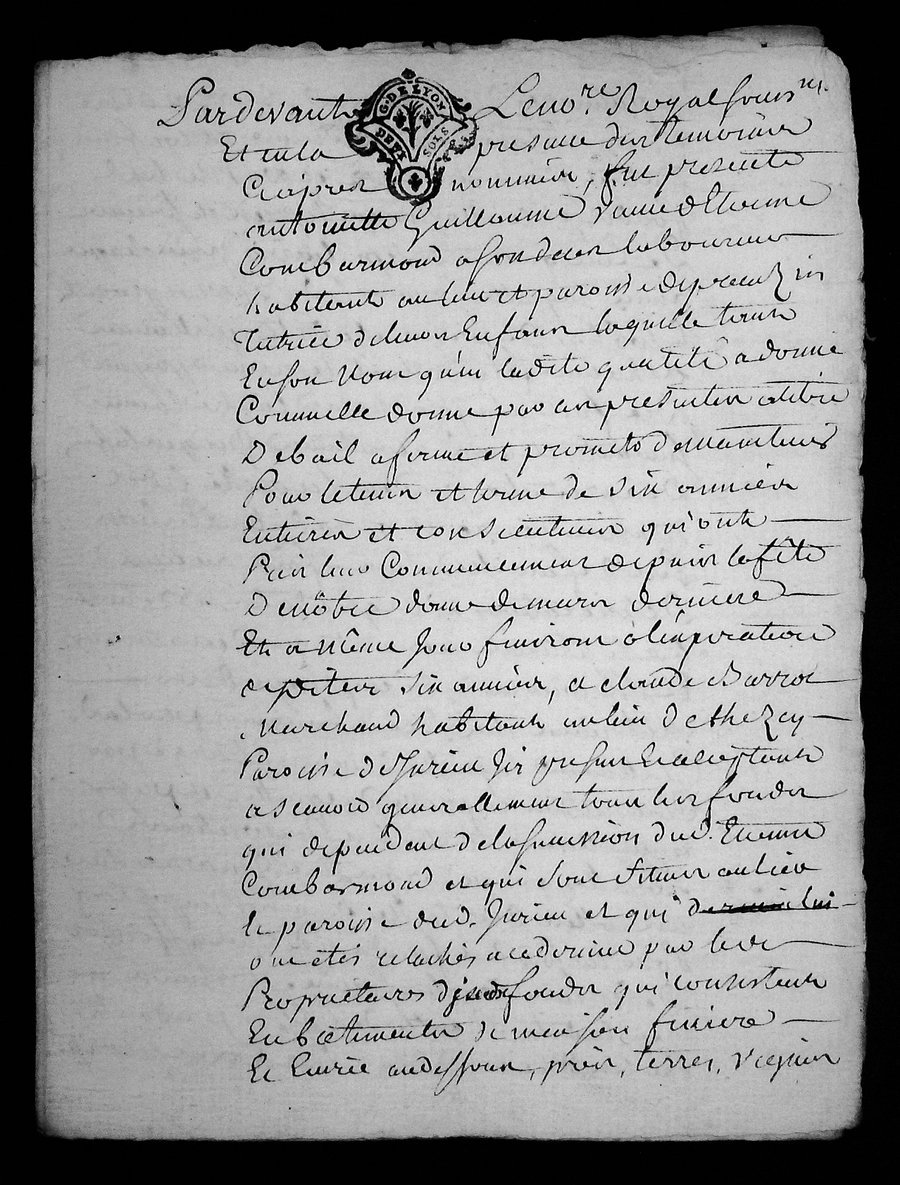 Pardevant Le no.re Royal sousne.
G. DE LYON
DEUX SOLS
Et en la presence des temoins
Ci apres nommés, fut presente
antoinette Guillaume veuve d'Etienne
Combarmond a son deces laboureur
habitante au lieu et paroisse de
Tutrice de leurs Enfans laquelle tant
En son Nom qu'en ladite qualité a donné
Comme elle donne par ces presentes a titre
De bail a ferme et promets de maintenir
Pour le tems et terme de six années
Entieres et consecutives qui ont
Pris leur Commencement depuis la fête
De nôtre dame de mars derniere
Et a même jour finiront a l'expiration
desdites six années, a claude Barrot
Marchand habitant au lieu de chezey
Paroisse de Jurieu ici present et acceptant
a scavoir generallement tous les fonds
qui dependent de la succession dud. Etienne
Combarmond et qui sont situés au lieu
et paroisse dud. Jurieu et qui
ont étés relachés a ce dernier par les
Propriétaires desd fonds qui consistent
En bâtimens de maison
Et Ecurie au dessous, prés, terres, vignes